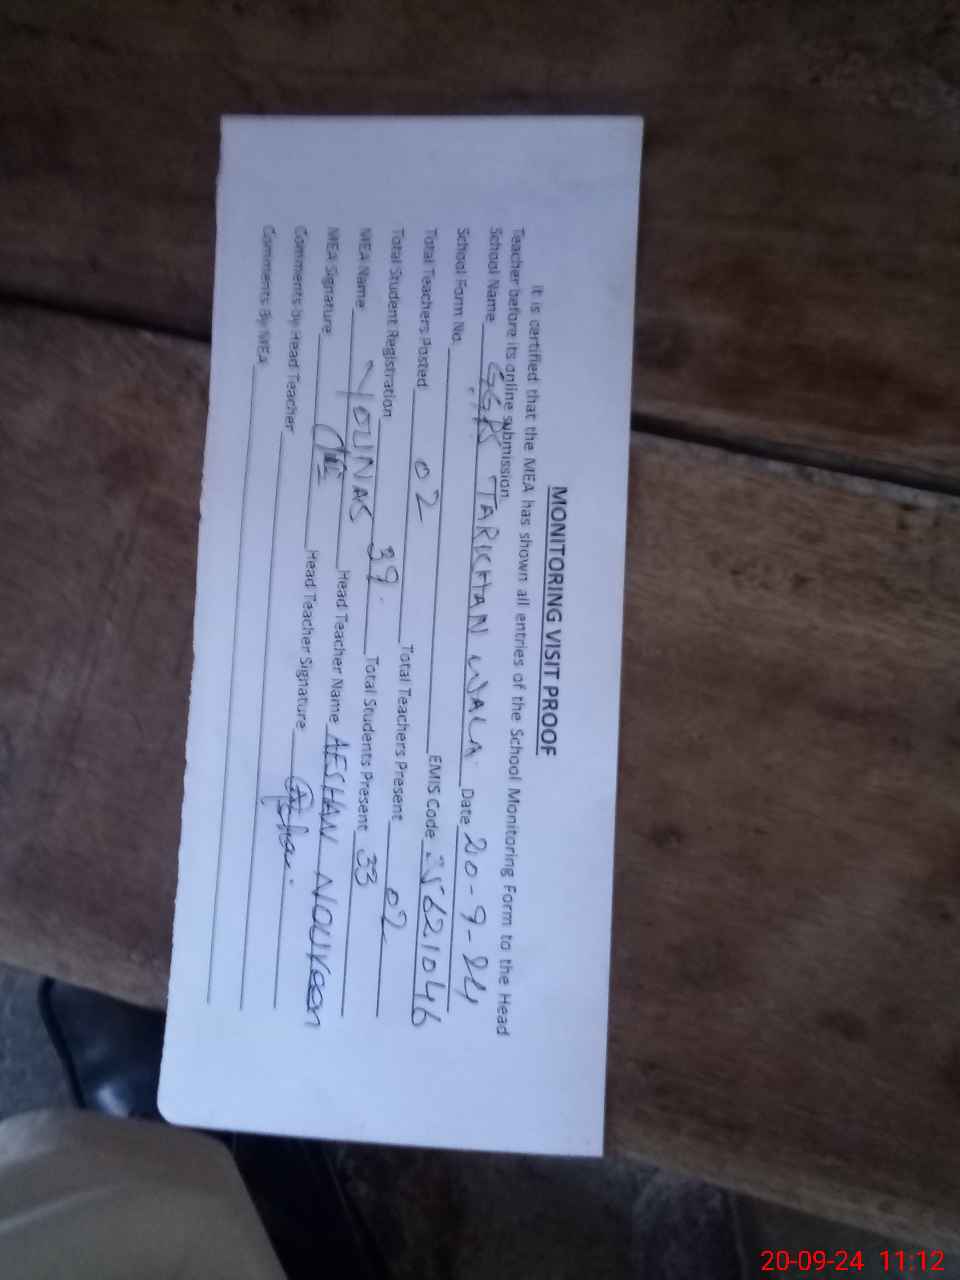 MONITORING VISIT PROOF
It is certified that the MEA has shown all entries of the School Monitoring Form to the Head
Teacher before its online submission.
School Name TARKHAN WALA Date 20-9-24
School Form No. EMIS Code 35621046
Total Teachers Posted 02 Total Teachers Present 02
Total Student Registration 39 Total Students Present 33
MEA Name YOUNAS Head Teacher Name AFSHAN NOUREEN
MEA Signature Head Teacher Signature
Comments by Head Teacher
Comments By MEA
20-09-24 11:12